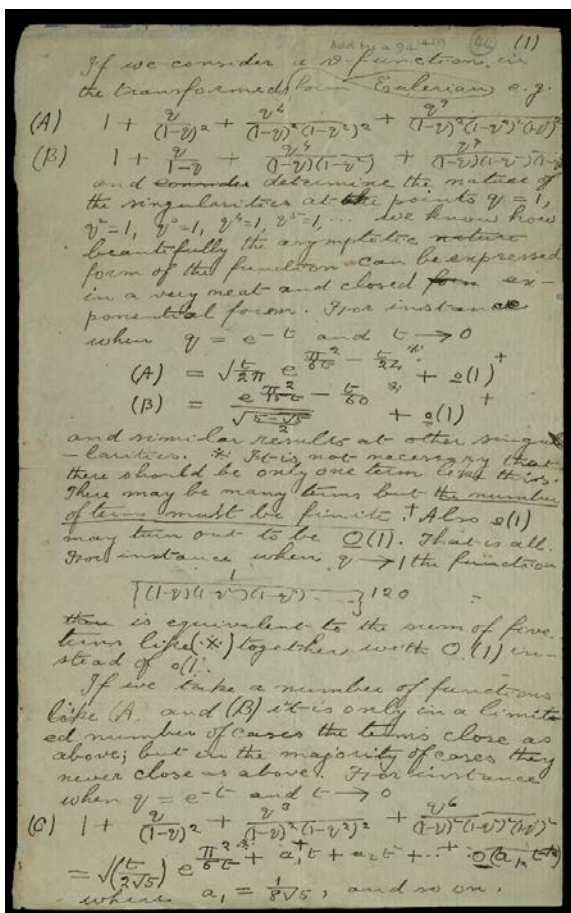 Add. ms. a 94 (44) (1)
If we consider a ϑ-function in
the transformed form Eulerian, e.g.
(A) 1 + q/(1-q)² + q⁴/(1-q)²(1-q²)² + q⁹/(1-q)²(1-q²)²(1-q³)²
(B) 1 + q/1-q + q⁴/(1-q)(1-q²) + q⁹/(1-q)(1-q²)(1-q³)
and consider determine the nature of
the singularities at the points q = 1,
q² = 1, q³ = 1, q⁴ = 1, q⁵ = 1, ... we know how
beautifully the asymptotic nature
form of the function can be expressed
in a very neat and closed form ex-
ponential form. For instance
when q = e^-t and t → 0
(A) = √(t/2π) e^(π²/6t - t/24) * + o(1) +
(B) = e^(π²/15t - t/60) * / √(5-√5/2) + o(1) +
and similar results at other singu
-larities. * It is not necessary that
there should be only one term like this.
There may be many terms but the number
of terms must be finite. + Also o(1)
may turn out to be O(1). That is all.
For instance when q → 1 the function
1/{(1-q)(1-q²)(1-q³) ...}120
is equivalent to the sum of five
terms like (*) together with O(1) in-
stead of o(1).
If we take a number of functions
like (A) and (B) it is only in a limit
ed number of cases the terms close as
above; but in the majority of cases they
never close as above. For instance
when q = e^-t and t → 0
(C) 1 + q/(1-q)² + q³/(1-q)²(1-q²)² + q⁶/(1-q)²(1-q²)²(1-q³)²
= √(t/2π√5) e^(π²/5t + a₁t + a₂t² + ... + O(aₖt^k))
where a₁ = 1/8√5, and so on.